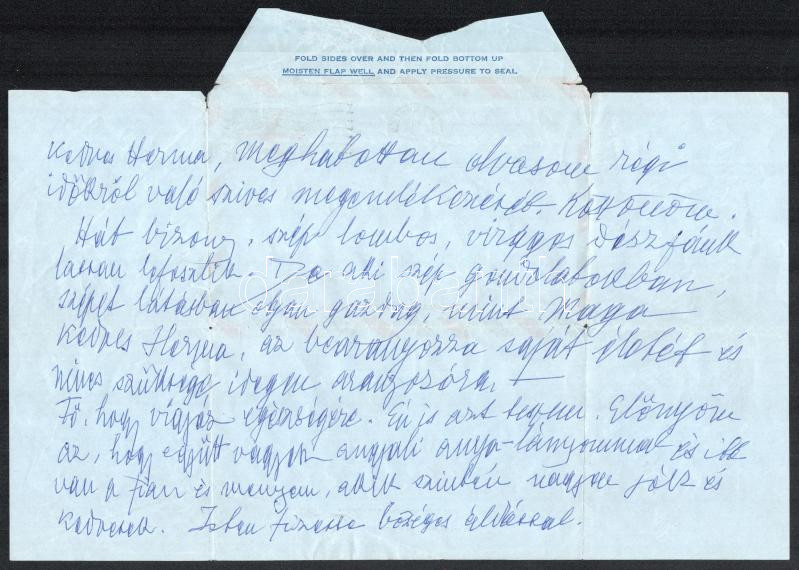 FOLD SIDES OVER AND THEN FOLD BOTTOM UP
MOISTEN FLAP WELL AND APPLY PRESSURE TO SEAL
Kedves Herma, meghatottan olvasom régi
időkről való szives megemlékezését. Köszönöm.
Hát bizony, szép lombos, virágos
lassan lefoszlik. De aki szép gondolatokban,
szépet látásban olyan gazdag, mint Maga
Kedves Herma, az bearanyozza saját életét és
nincs szüksége idegen aranyozóra. –
Fő, hogy vigyáz egészségére. Én is azt teszem. Előnyöm
az, hogy együtt vagyok angyali anya-lányommal és itt
van a fiam és menyem, akik szintén nagyon jók és
kedvesek. Isten fizesse bőséges áldással.